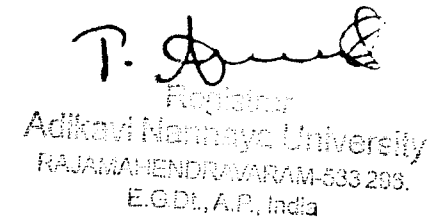 T.
Registrar
Adikavi Nannaya University
RAJAMAHENDRAVARAM-533 296.
E.G.Dt., A.P., India